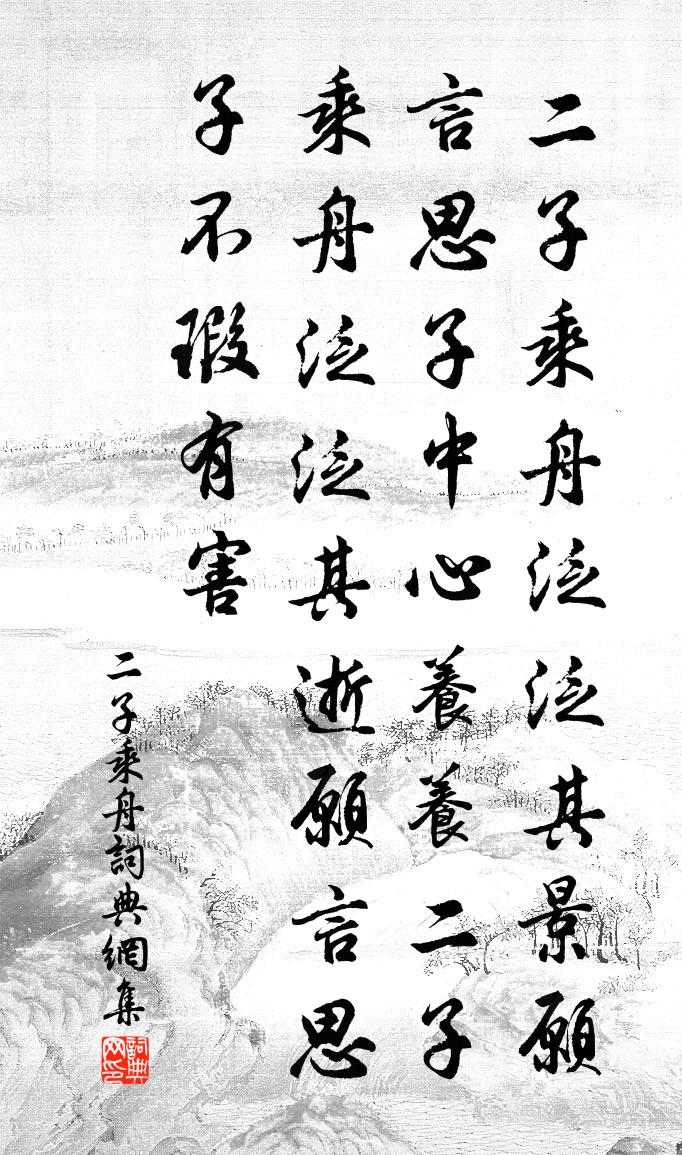 二子乘舟泛泛其景願
言思子中心養養二子
乘舟泛泛其逝願言思
子不瑕有害
二子乘舟詞典網集
詞典网印